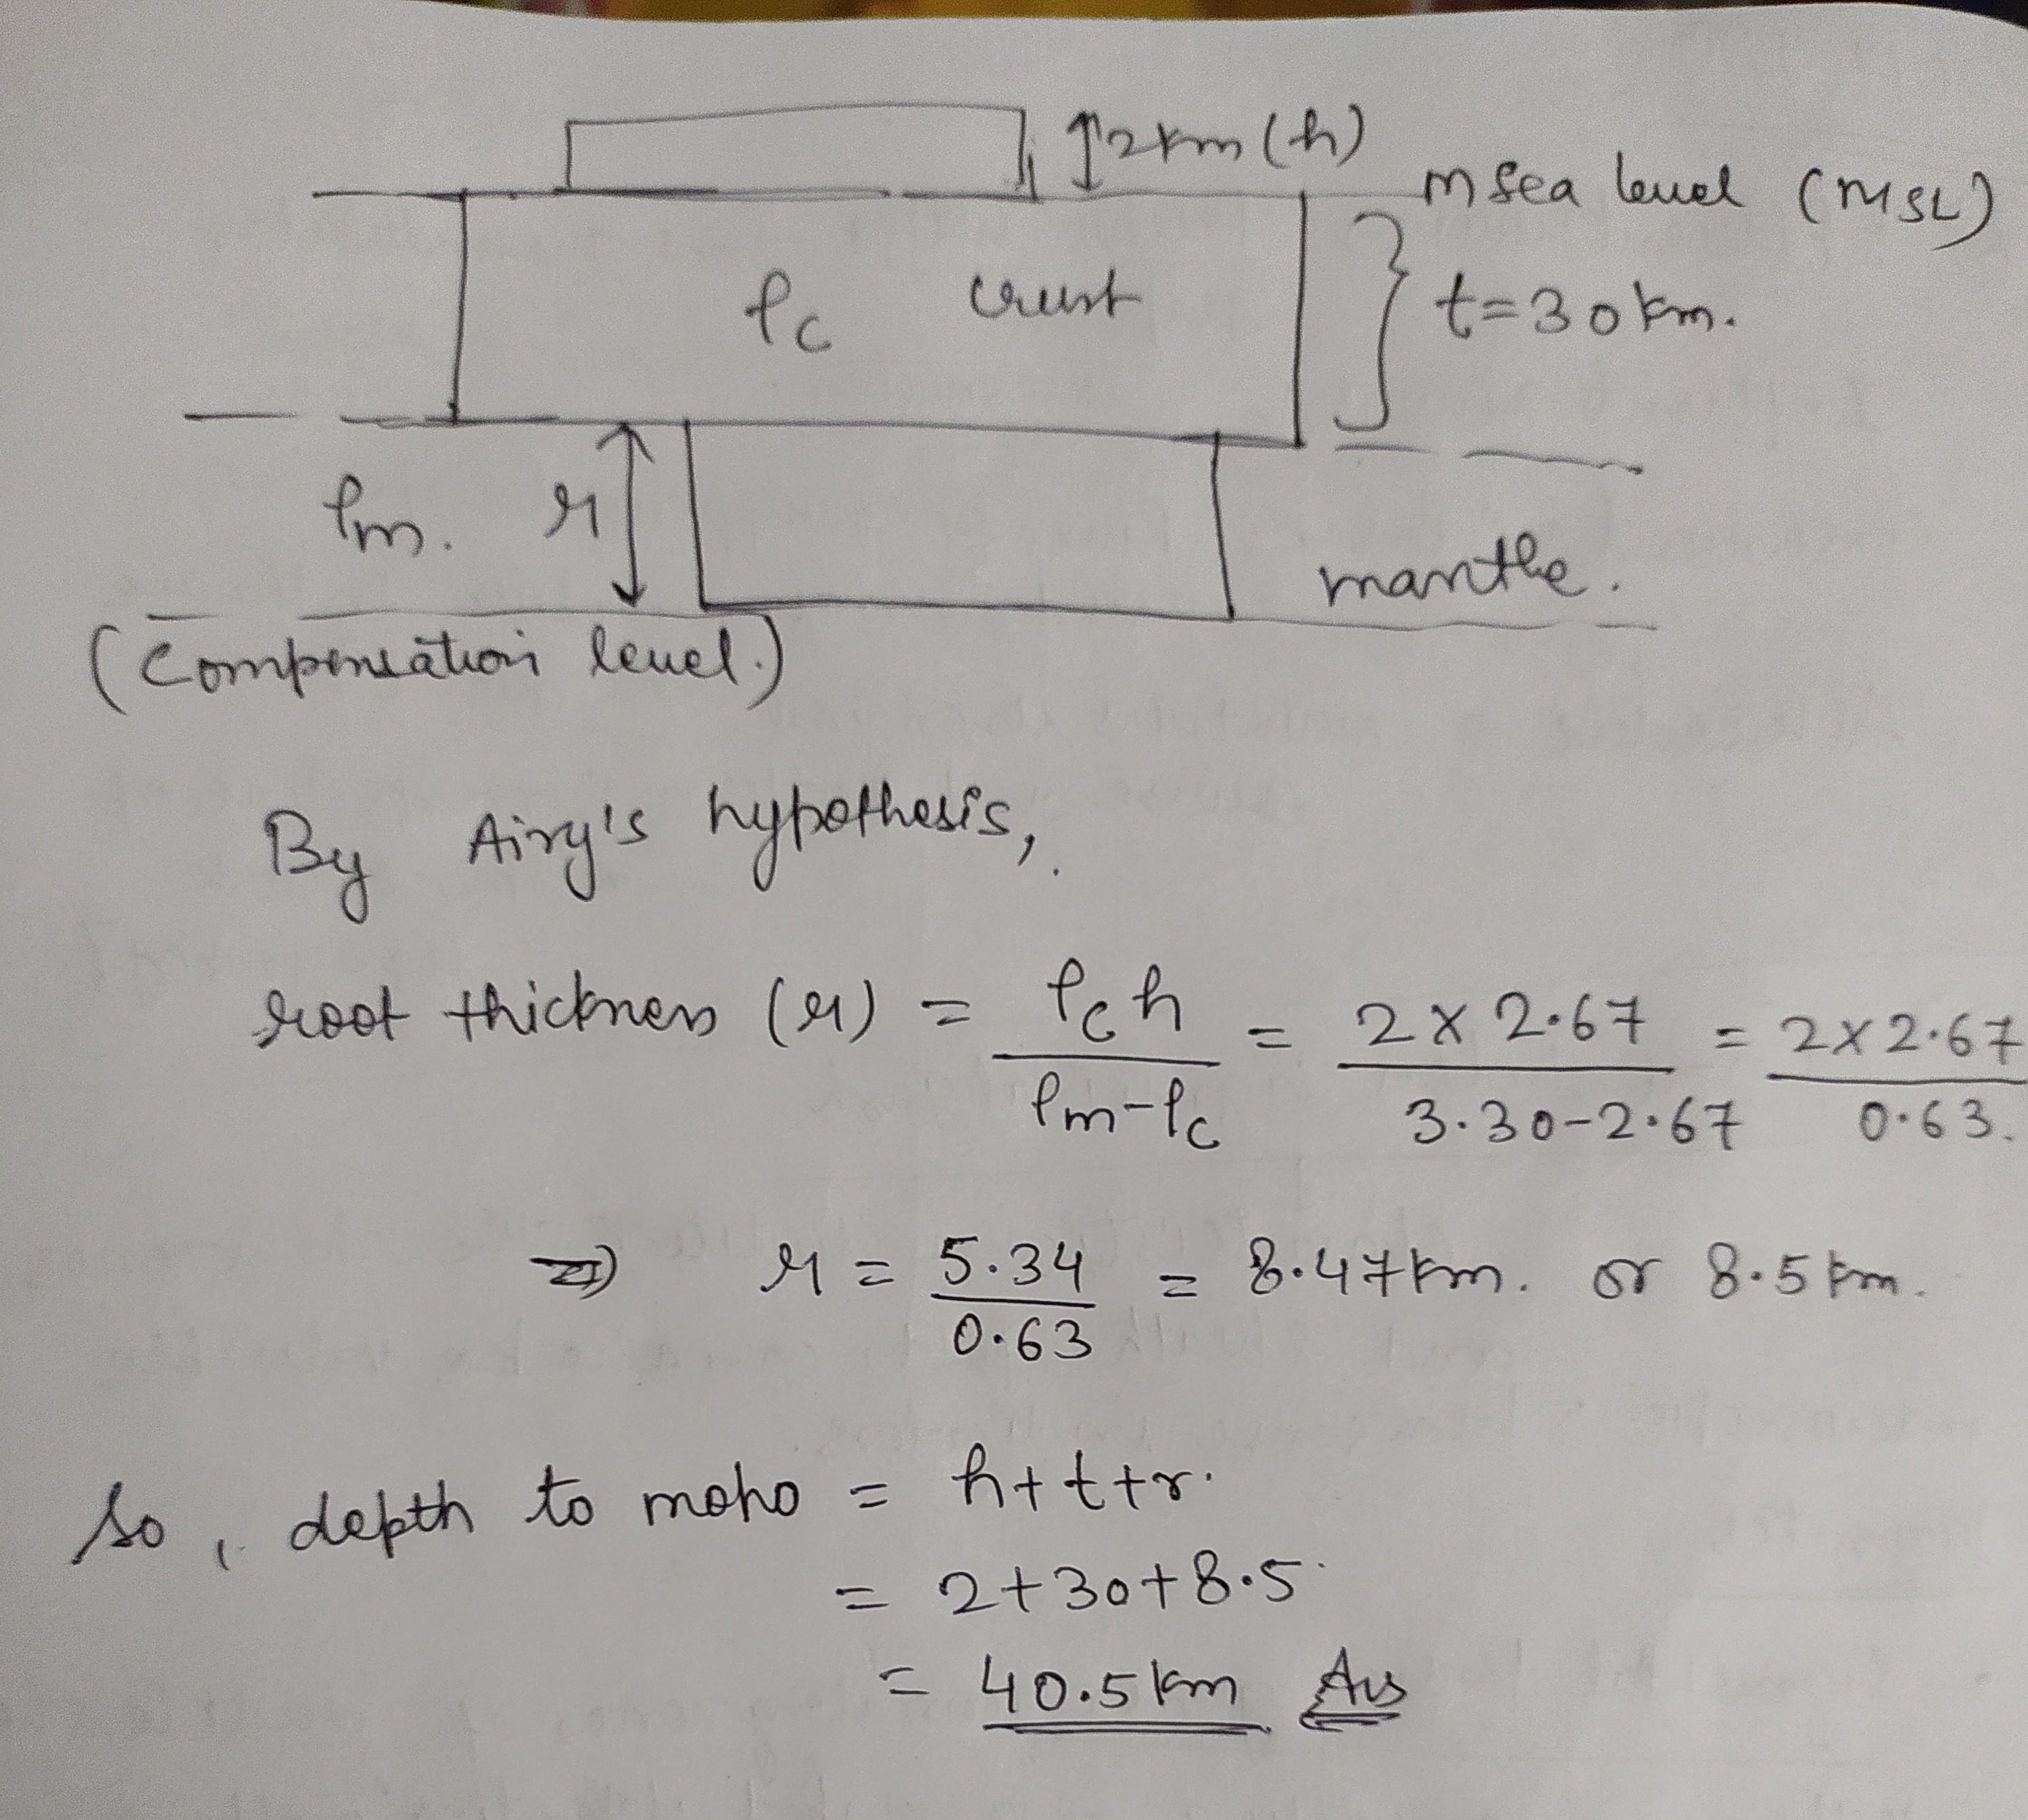 2km (h)
m sea level (MSL)
ρc crust
t=30km.
ρm. r
mantle.
(Compensation level.)
By Airy's hypothesis,
root thickness (r) = ρc h / ρm-ρc = 2 x 2.67 / 3.30-2.67 = 2x2.67 / 0.63.
⇒ r = 5.34 / 0.63 = 8.47km. or 8.5km.
So, depth to moho = h+t+r.
= 2+30+8.5
= 40.5km Ans